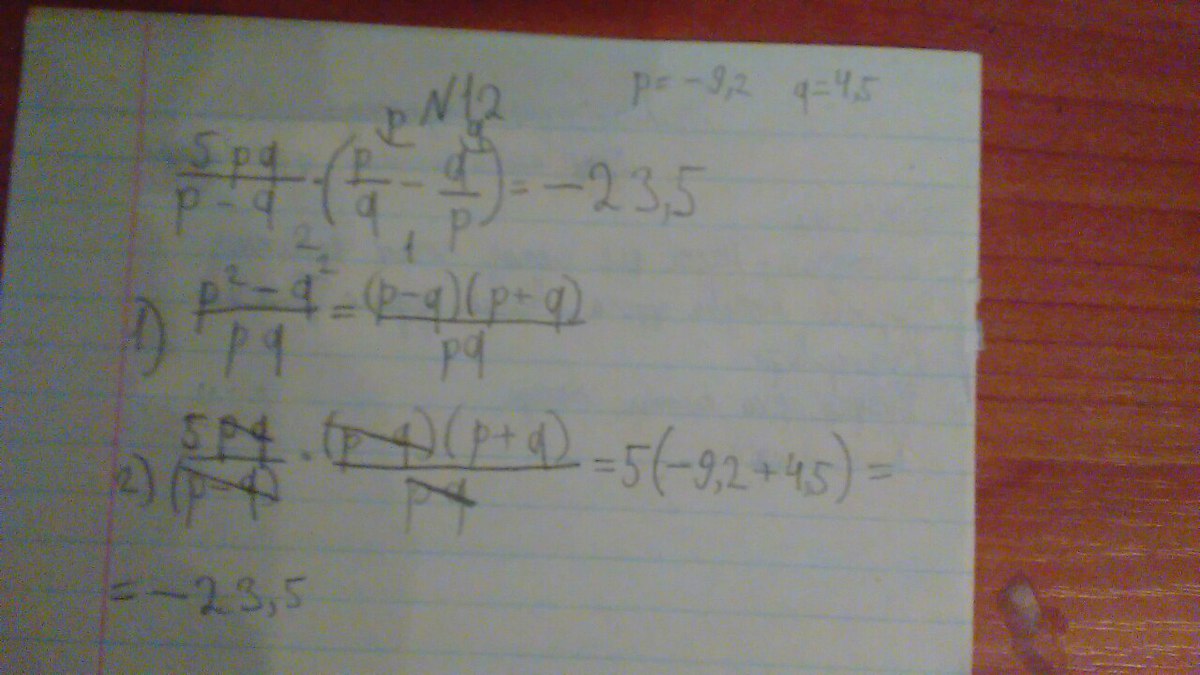 p = -9,2 q = 4,5
N12
5pq/(p - q) · (p/q - q/p) = -23,5
1) (p² - q²)/(pq) = ((p-q)(p+q))/(pq)
2) 5pq/(p-q) · ((p-q)(p+q))/(pq) = 5(-9,2+4,5) =
= -23,5